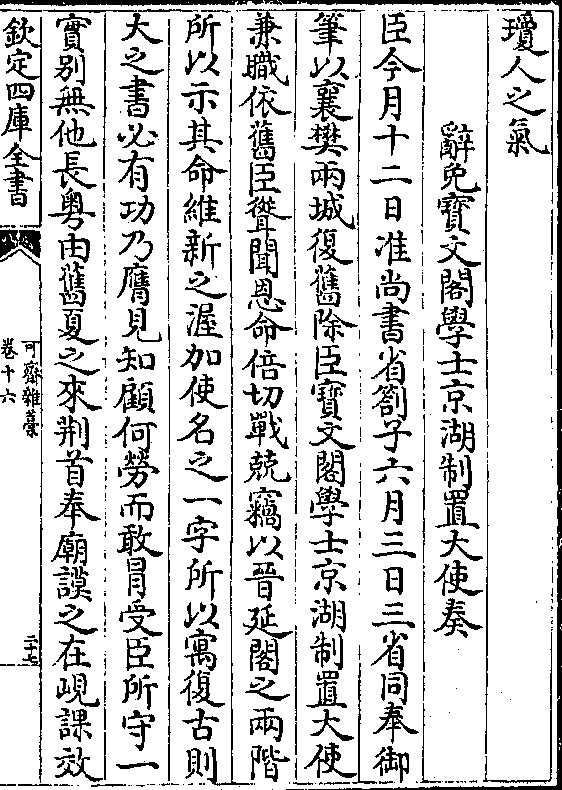 瓊人之氣
辭免寶文閣學士京湖制置大使奏
臣今月十二日准尚書省劄子六月三日三省同奉御
筆以襄樊兩城復舊除臣寶文閣學士京湖制置大使
兼職依舊臣聳聞恩命倍切戰兢竊以晉延閣之兩階
所以示其命維新之渥加使名之一字所以寓復古則
大之書必有功乃膺見知顧何勞而敢冒受臣所守一
實别無他長粤由舊夏之來荆首奉廟謨之在峴課效
欽定四庫全書
可齋雜藁
卷十六
二十七